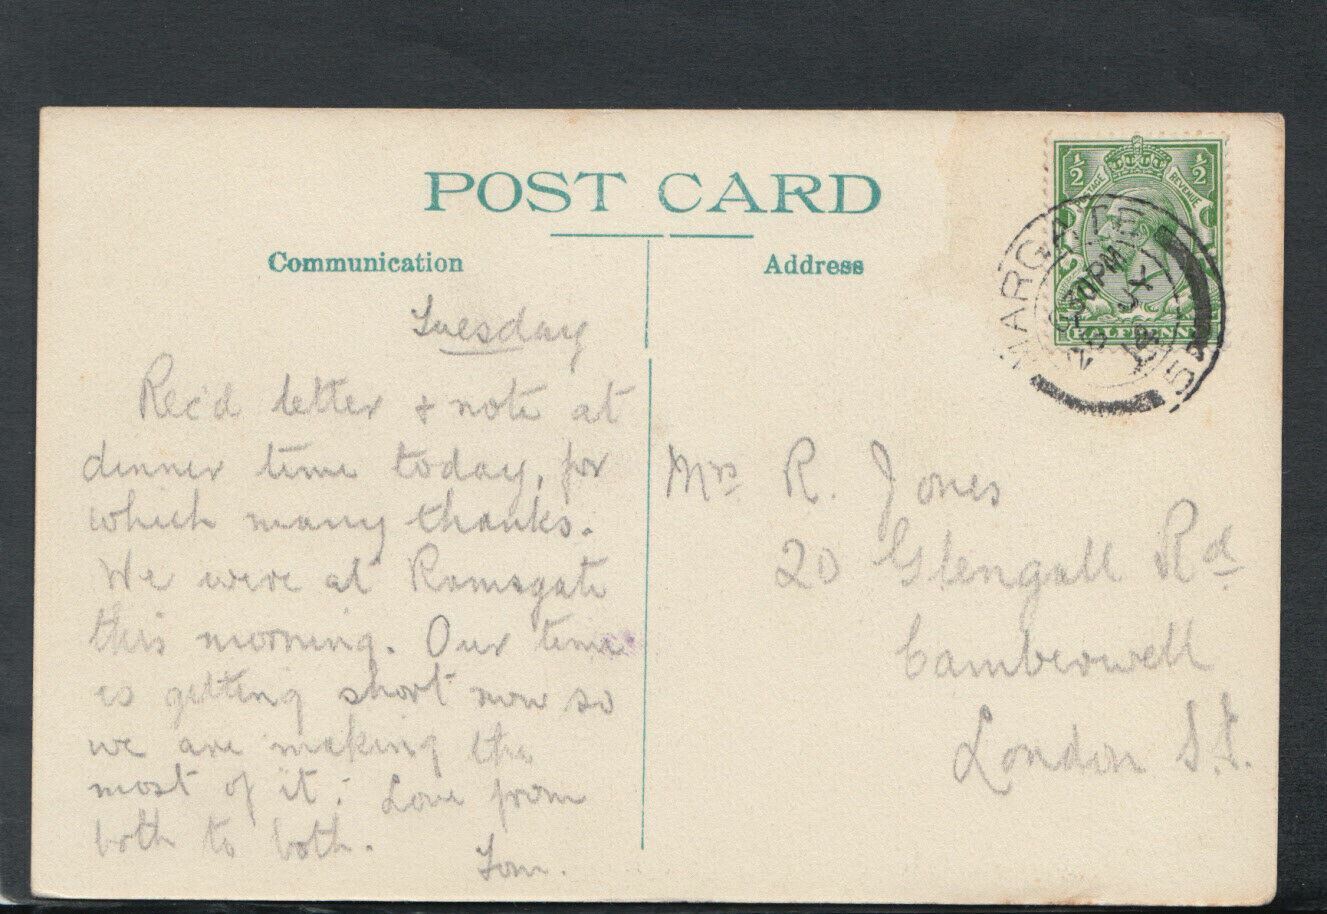 POST CARD
Communication
Address
½ ½
POSTAGE REVENUE
HALFPENNY
MARGATE
30PM
JY
14
Tuesday
Rec'd letter & note at
dinner time today, for
which many thanks.
We were at Ramsgate
this morning. Our time
is getting short now so
we are making the
most of it. Love from
both to both.
Tom.
Mrs R. Jones
20 Glengall Rd
Camberwell
London S.E.